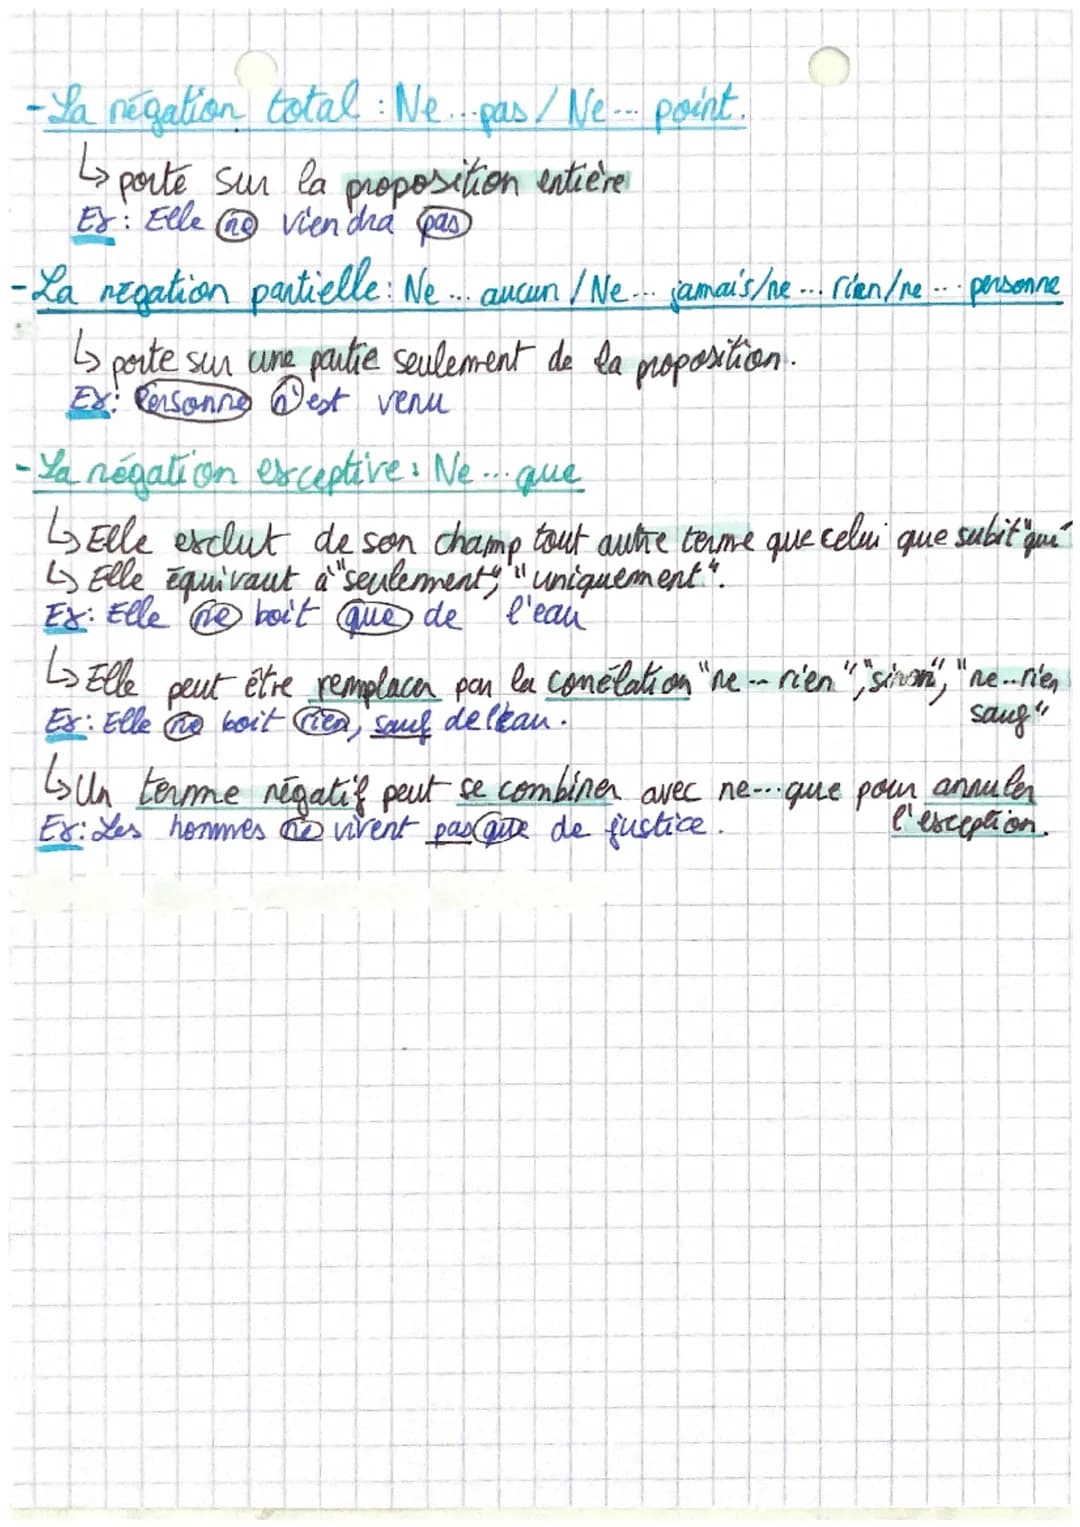 - La négation total : Ne...pas / Ne... point.
↳ porte sur la proposition entière
Ex : Elle ne viendra pas
- La négation partielle : Ne ... aucun / Ne ... jamais/ne ... rien/ne ... personne
↳ porte sur une partie seulement de la proposition.
Ex : Personne n'est venu
- La négation exceptive : Ne ... que
↳ Elle exclut de son champ tout autre terme que celui que subit "que"
↳ Elle équivaut à "seulement", "uniquement".
Ex : Elle ne boit que de l'eau
↳ Elle peut être remplacer par la corrélation "ne ... rien", "sinon", "ne...rien
sauf"
Ex : Elle ne boit rien, sauf de l'eau.
↳ Un terme négatif peut se combiner avec ne...que pour annuler
l'exception.
Ex : Les hommes ne vivent pas que de justice.